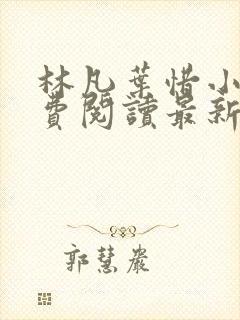 林凡葉惜小
費閱讀最新
郭慧嚴